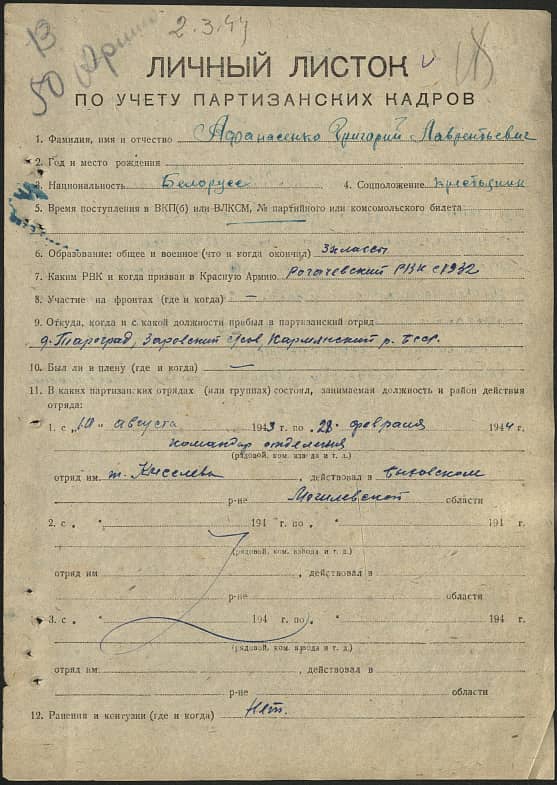 13
50 Арм
2.3.44
ЛИЧНЫЙ ЛИСТОК
ПО УЧЕТУ ПАРТИЗАНСКИХ КАДРОВ
1. Фамилия, имя и отчество Афанасенко Григорий Лаврентьевич
2. Год и место рождения
3. Национальность Белорусс 4. Соцположение крестьянин
5. Время поступления в ВКП(б) или ВЛКСМ, № партийного или комсомольского билета
6. Образование: общее и военное (что и когда окончил) 3 класса
7. Каким РВК и когда призван в Красную Армию Рогачевский РВК с 1932
8. Участие на фронтах (где и когда) —
9. Откуда, когда и с какой должности прибыл в партизанский отряд
д. Тароград, Заровский с/сов, Кармянский р. БССР.
10. Был ли в плену (где и когда) —
11. В каких партизанских отрядах (или группах) состоял, занимаемая должность и район действия
отряда:
1. с „10" августа 1943 г. по „28" февраля 1944 г.
командир отделения
(рядовой, ком. взвода и т. д.)
отряд им т. Киселева, действовал в Быховском
р-не Могилевской области
2. с „ " 194 г. по „ " 194 г.
(рядовой, ком. взвода и т. д.)
отряд им , действовал в
р-не области
3. с „ " 194 г. по „ " 194 г.
(рядовой, ком. взвода и т. д.)
отряд им. , действовал в
р-не области
12. Ранения и контузии (где и когда) Нет.